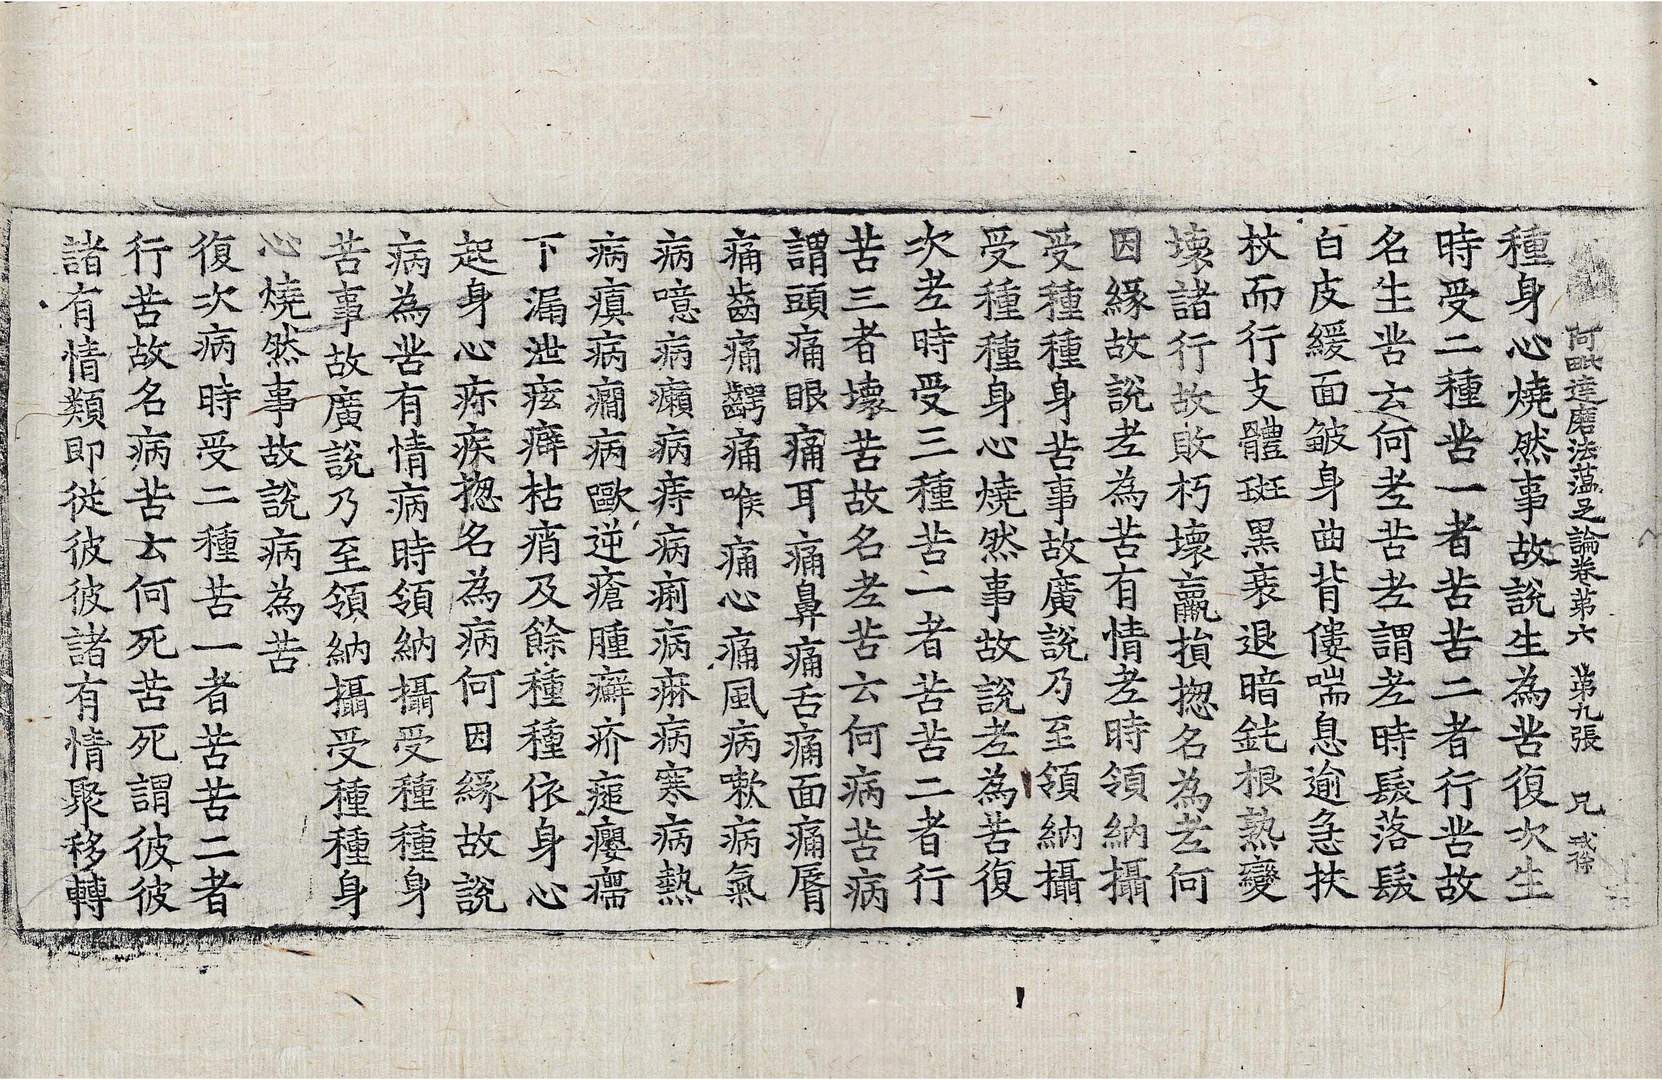 阿毗達磨法蘊足論卷第六 第九張 兄 戒徐
種身心燒然事故說生為苦復次生
時受二種苦一者苦苦二者行苦故
名生苦云何老苦老謂老時髮落髮
白皮緩面皺身曲背僂喘息逾急扶
杖而行支體斑黑衰退暗鈍根熟變
壞諸行故敗朽壞羸損揔名為老何
因緣故說老為苦有情老時領納攝
受種種身苦事故廣說乃至領納攝
受種種身心燒然事故說老為苦復
次老時受三種苦一者苦苦二者行
苦三者壞苦故名老苦云何病苦病
謂頭痛眼痛耳痛鼻痛舌痛面痛脣
痛齒痛齶痛喉痛心痛風病嗽病氣
病噫病癩病痔病痢病痳病寒病熱
病瘨病癎病歐逆瘡腫癬疥瘧癭癗
下漏泄痃癖枯痟及餘種種依身心
起身心疹疾揔名為病何因緣故說
病為苦有情病時領納攝受種種身
苦事故廣說乃至領納攝受種種身
心燒然事故說病為苦
復次病時受二種苦一者苦苦二者
行苦故名病苦云何死苦死謂彼彼
諸有情類即從彼彼諸有情聚移轉